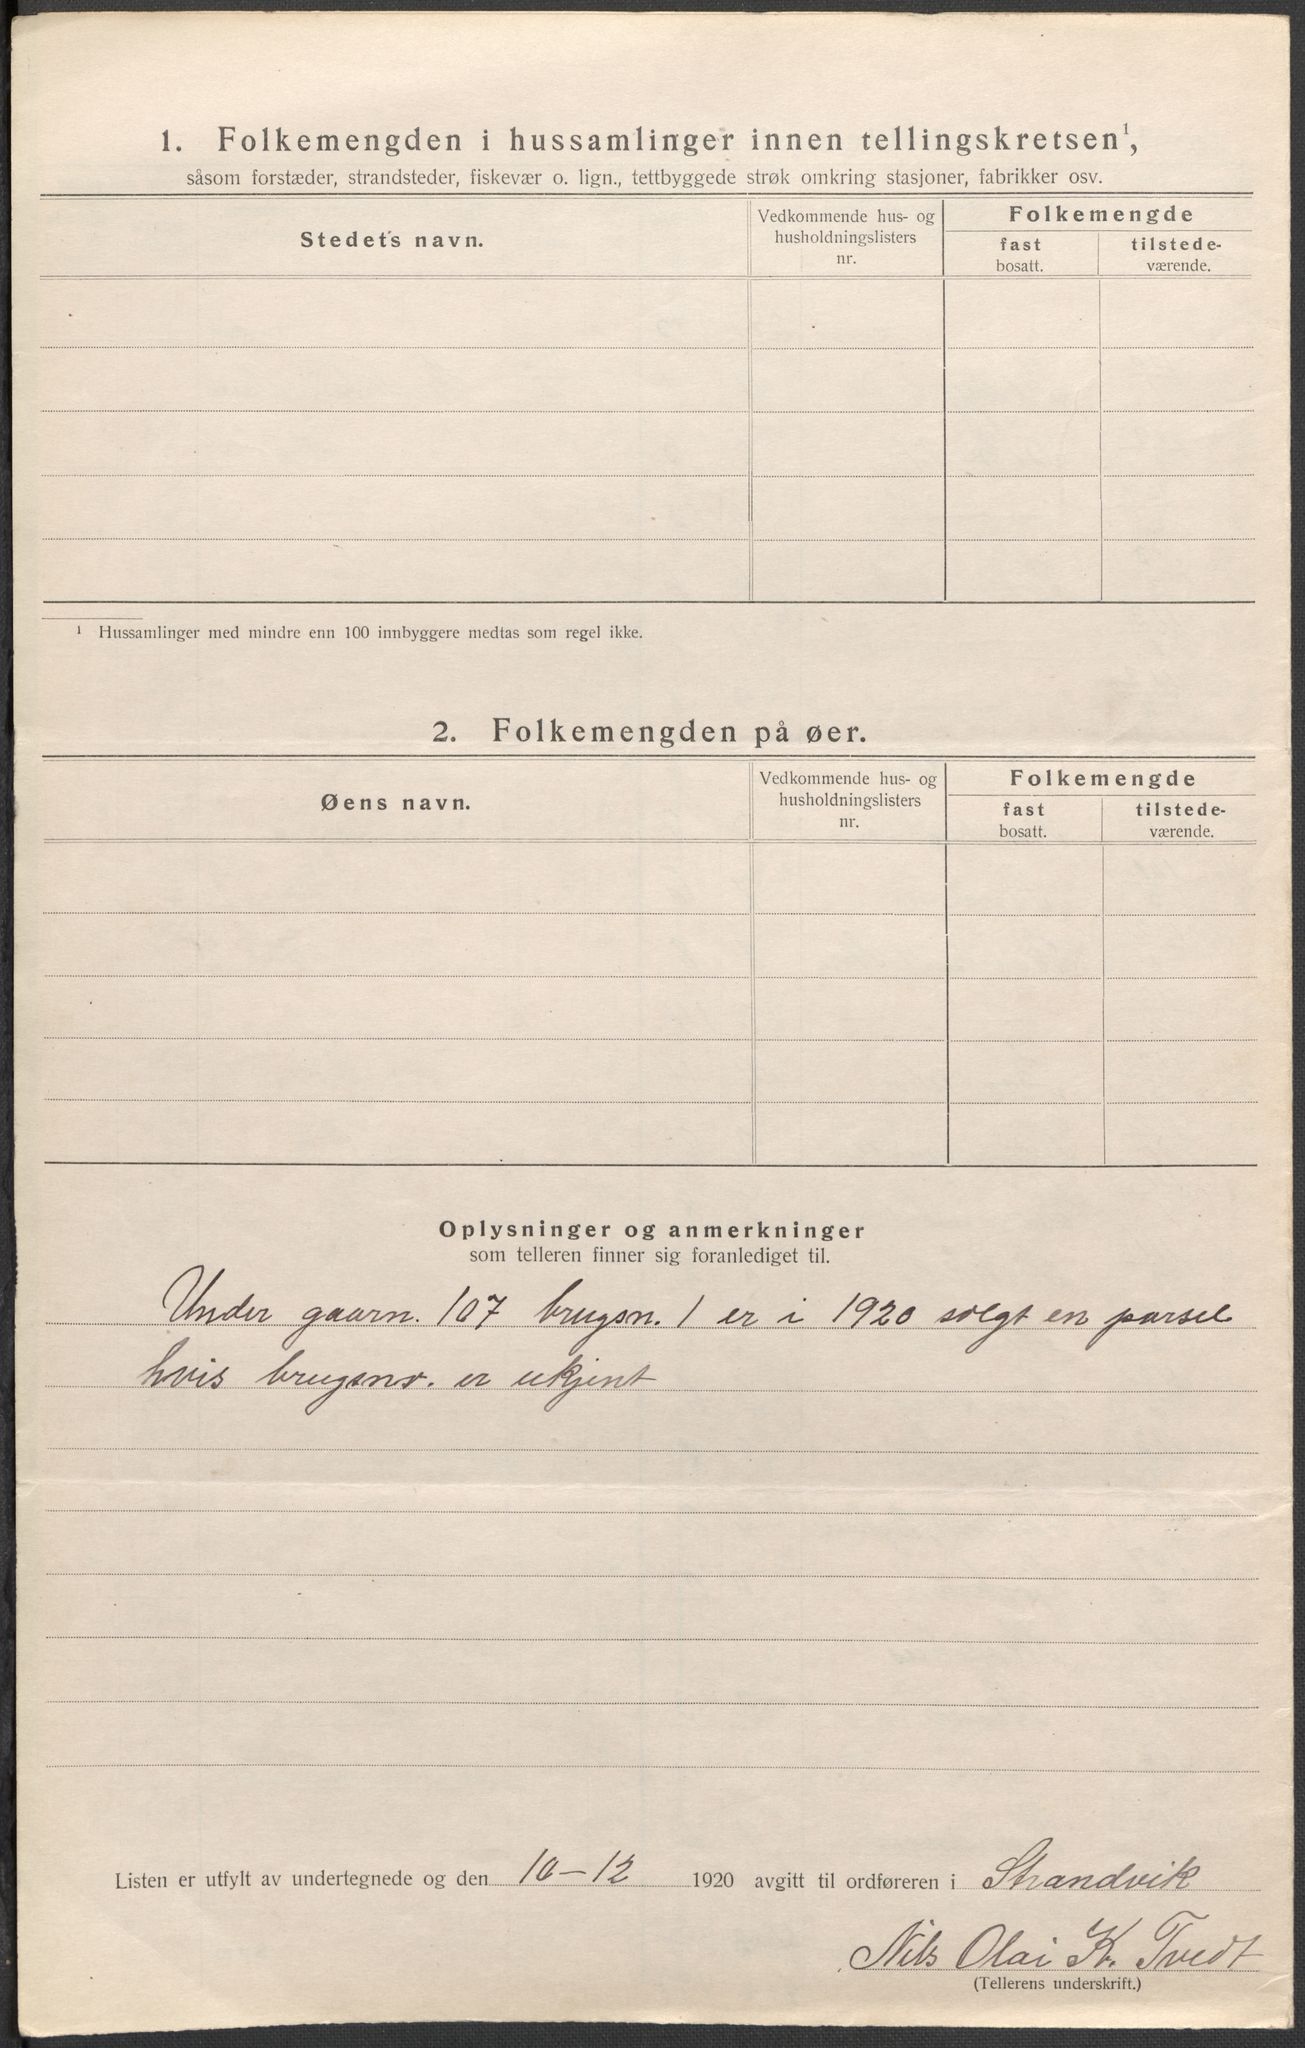 1. Folkemengden i hussamlinger innen tellingskretsen¹,
såsom forstæder, strandsteder, fiskevær o. lign., tettbyggede strøk omkring stasjoner, fabrikker osv.
Stedets navn.
Vedkommende hus- og
husholdningslisters
nr.
Folkemengde
fast
bosatt.
tilstede-
værende.
¹ Hussamlinger med mindre enn 100 innbyggere medtas som regel ikke.
2. Folkemengden på øer.
Øens navn.
Vedkommende hus- og
husholdningslisters
nr.
Folkemengde
fast
bosatt.
tilstede-
værende.
Oplysninger og anmerkninger
som telleren finner sig foranlediget til.
Under gaarn. 107 brugsn. 1 er i 1920 solgt en parsel
hvis brugsnr. er ukjent
Listen er utfylt av undertegnede og den 10-12 1920 avgitt til ordføreren i Strandvik
Nils Olai K. Tvedt
(Tellerens underskrift.)